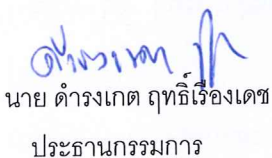 นาย ดำรงเกต ฤทธิ์เรืองเดช
ประธานกรรมการ